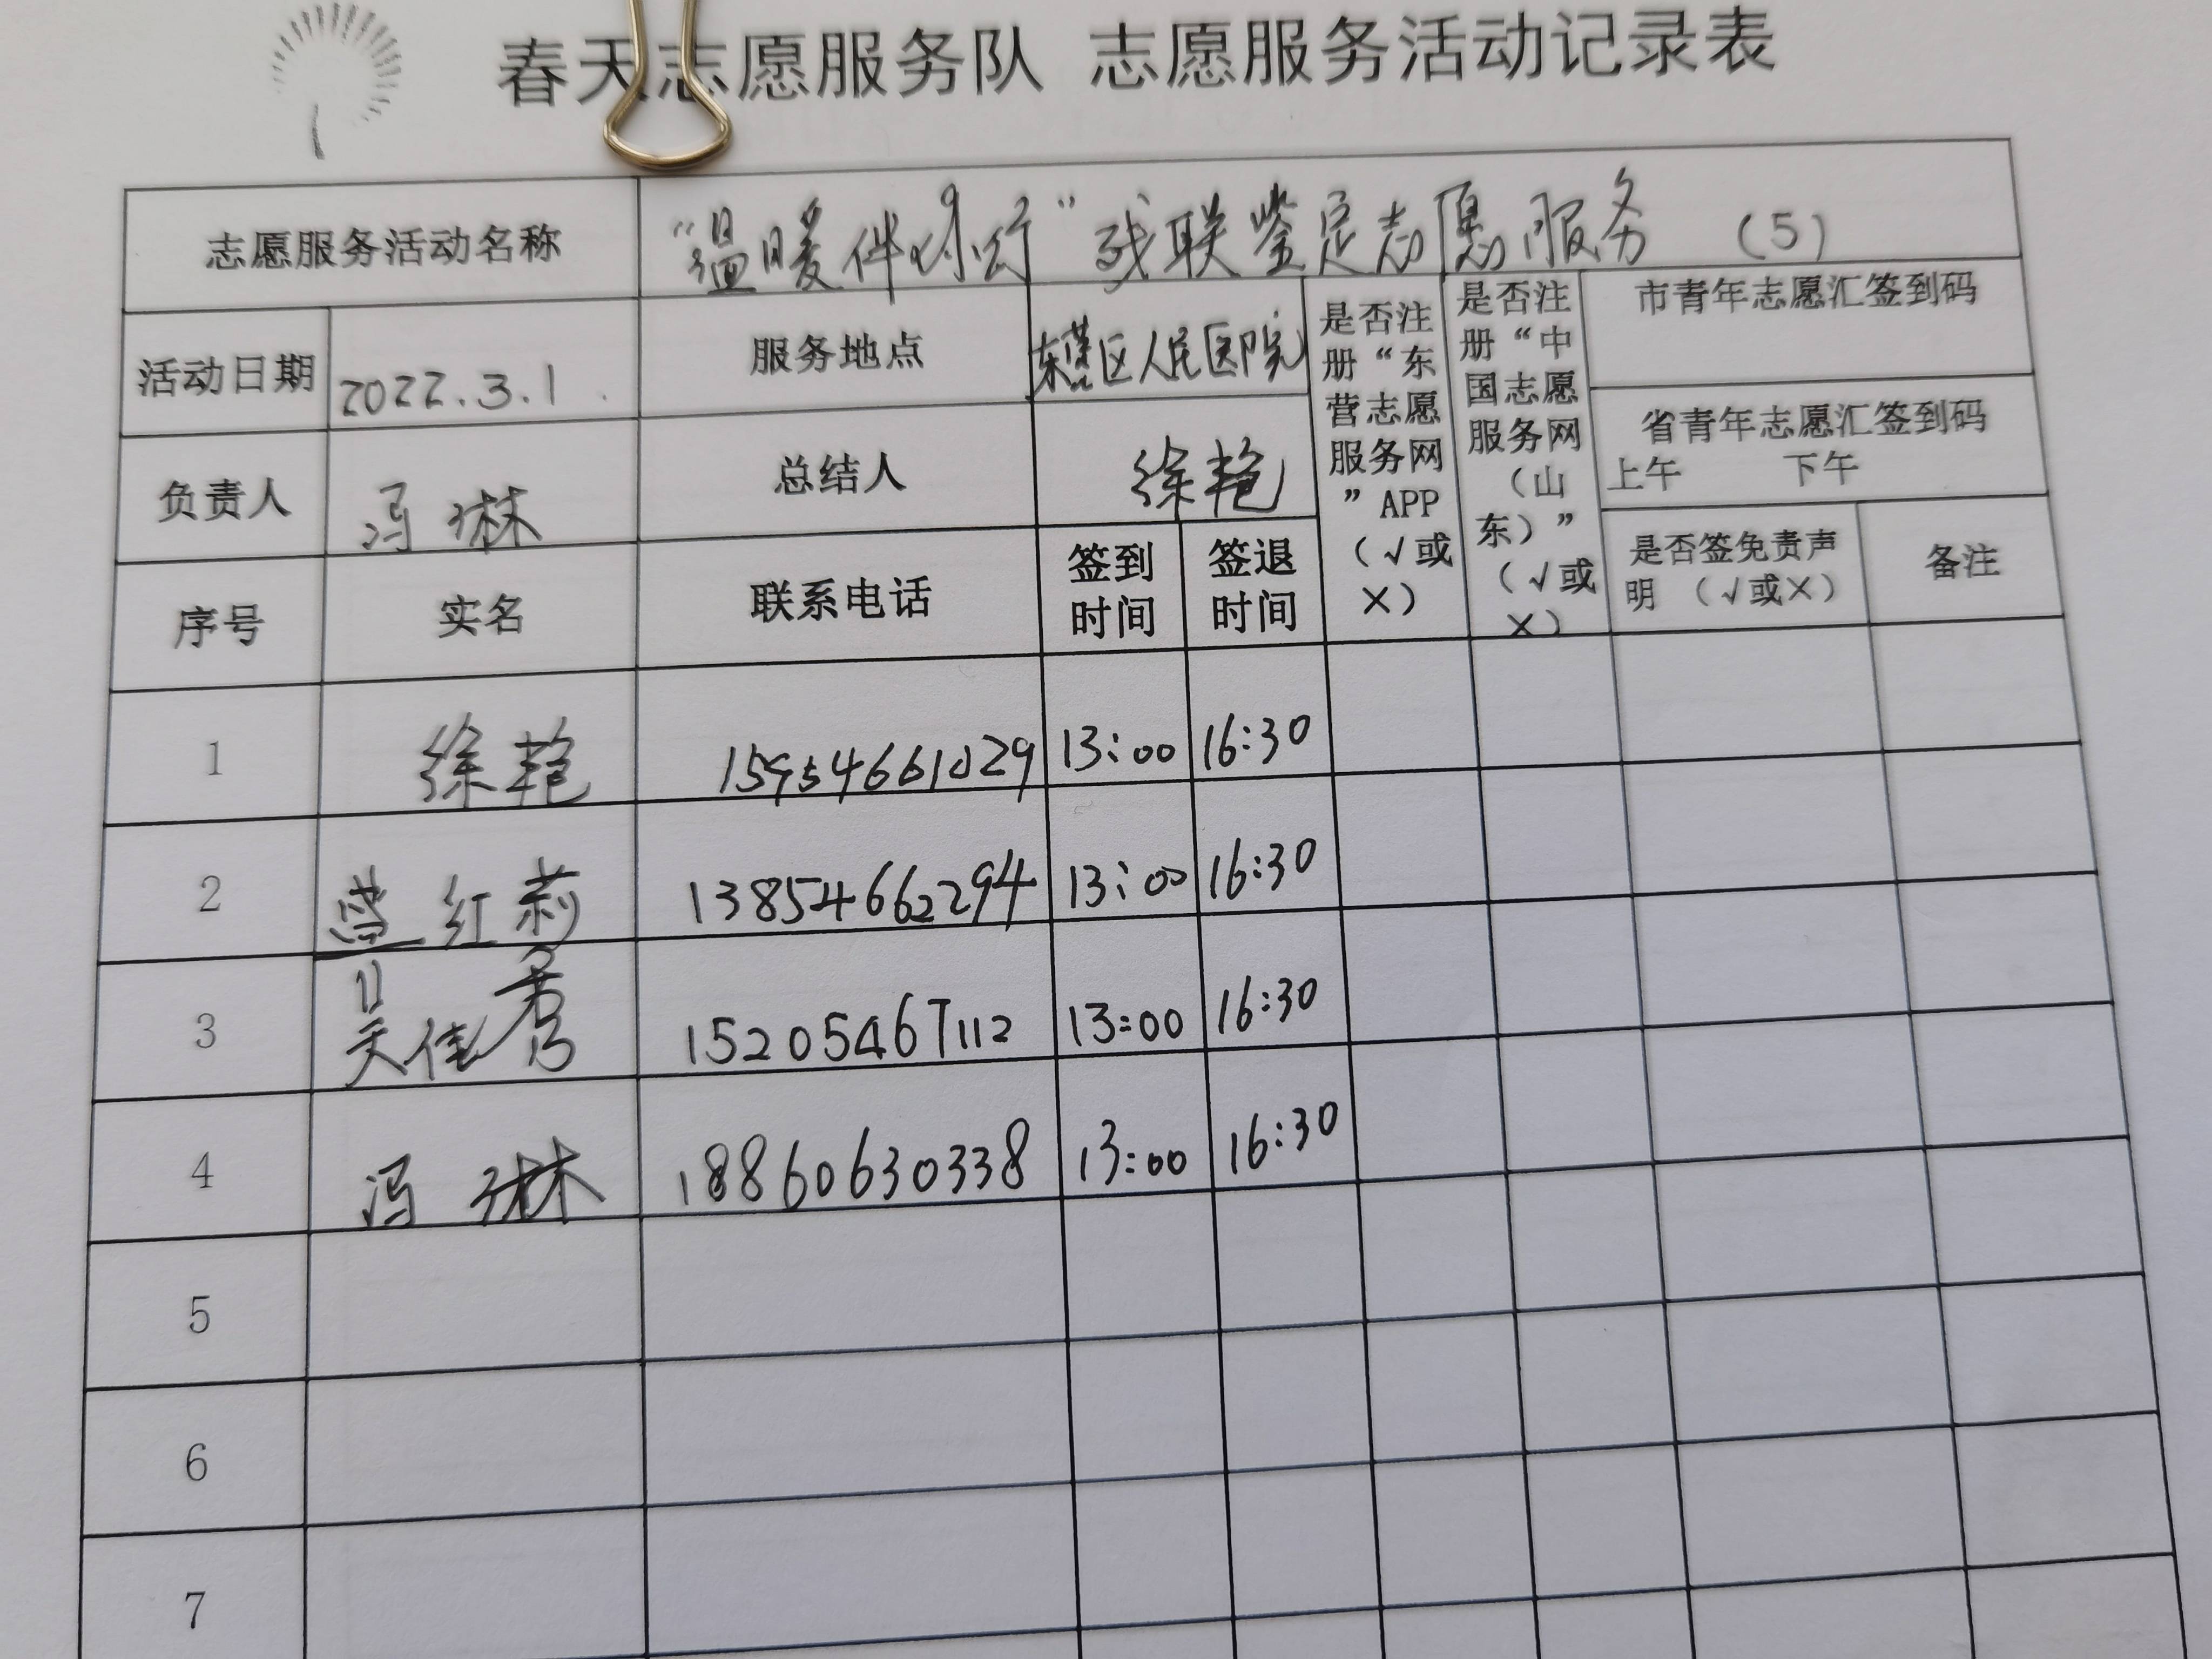 春天志愿服务队 志愿服务活动记录表
志愿服务活动名称 “温暖伴你行”残联鉴定志愿服务 (5)
活动日期 2022.3.1 服务地点 东营区人民医院
是否注册“东营志愿服务网”APP（√或×）
是否注册“中国志愿服务网（山东）”（√或×）
市青年志愿汇签到码
省青年志愿汇签到码
上午 下午
负责人 冯琳 总结人 徐艳
序号 实名 联系电话 签到时间 签退时间 是否签免责声明（√或×） 备注
1 徐艳 15954661029 13:00 16:30
2 红莉 13854662294 13:00 16:30
3 吴佳秀 15205467112 13:00 16:30
4 冯琳 18860630338 13:00 16:30
5
6
7